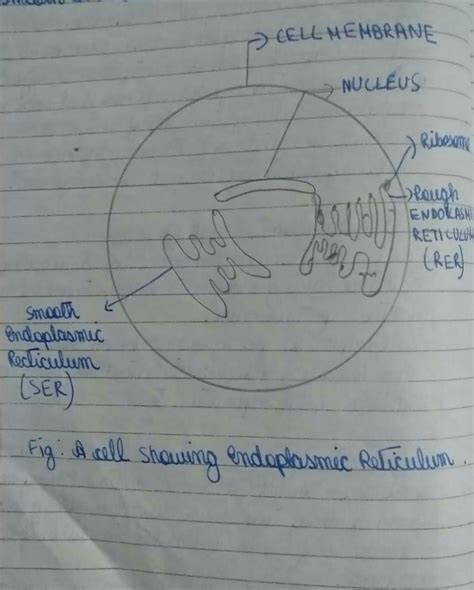 CELL MEMBRANE
NUCLEUS
Ribosome
Rough
ENDOPLASMI
RETICULUM
(RER)
Smooth
Endoplasmic
Recticulum
(SER)
Fig: A cell showing Endoplasmic Reticulum.